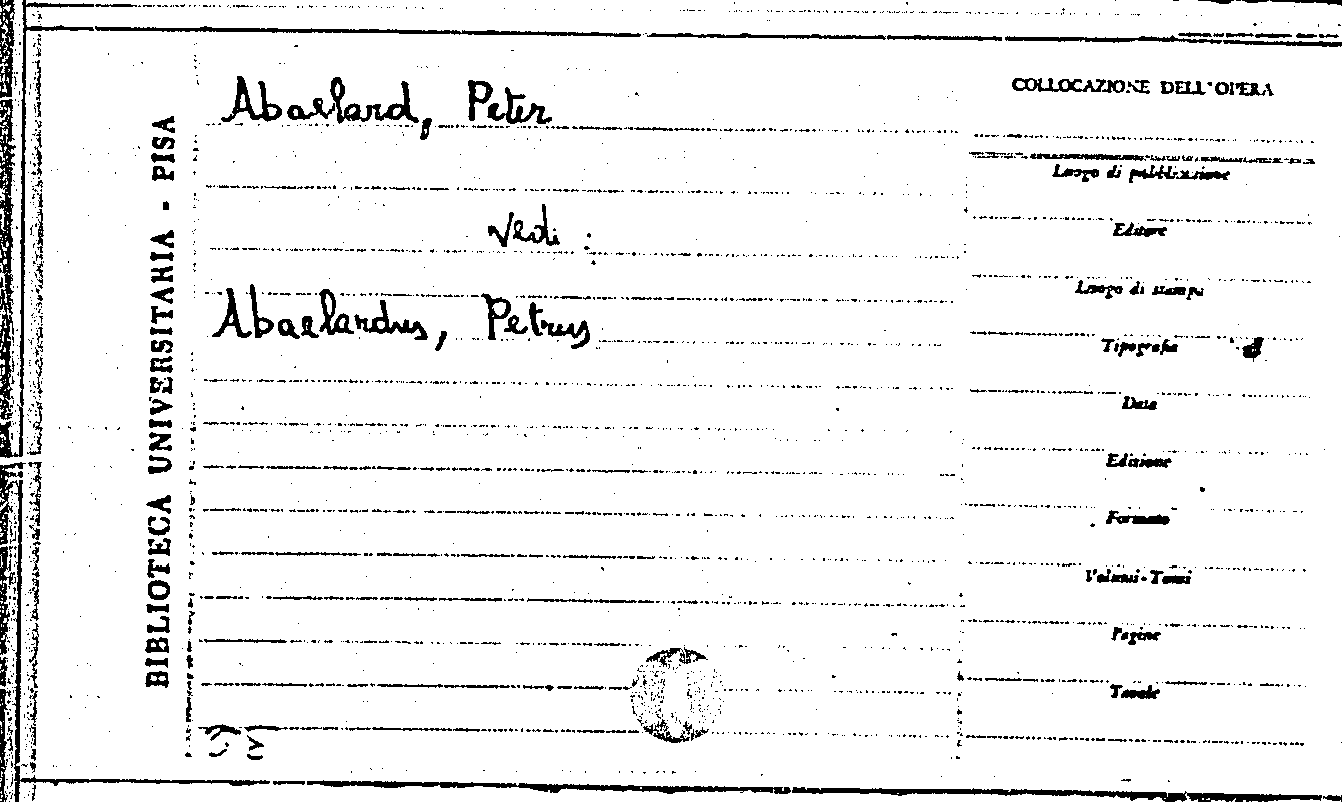 BIBLIOTECA UNIVERSITARIA - PISA
Abaelard, Peter
Vedi :
Abaelardus, Petrus
COLLOCAZIONE DELL'OPERA
Luogo di pubblicazione
Editore
Luogo di stampa
Tipografia
Data
Edizione
Formato
Volumi-Tomi
Pagine
Tavole